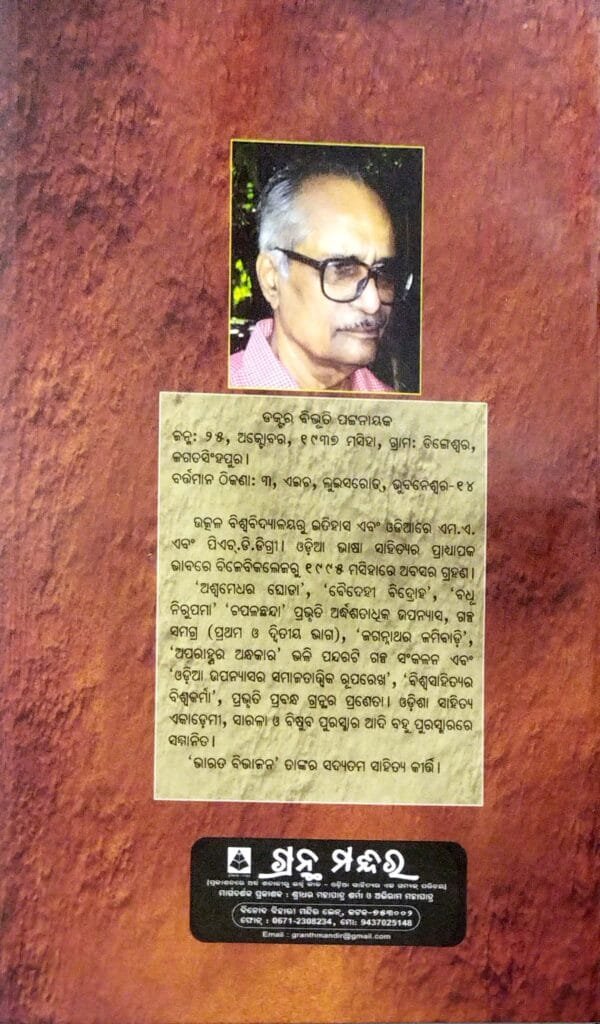 ଡକ୍ଟର ବିଭୂତି ପଟ୍ଟନାୟକ
ଜନ୍ମ: ୨୫, ଅକ୍ଟୋବର, ୧୯୩୭ ମସିହା, ଗ୍ରାମ: ଡିଙ୍ଗେଶ୍ୱର,
ଜଗତସିଂହପୁର।
ବର୍ତ୍ତମାନ ଠିକଣା: ୩, ଏଇଚ, ଲୁଇସରୋଡ୍, ଭୁବନେଶ୍ୱର-୧୪
ଉତ୍କଳ ବିଶ୍ୱବିଦ୍ୟାଳୟରୁ ଇତିହାସ ଏବଂ ଓଡିଆରେ ଏମ.ଏ.
ଏବଂ ପିଏଚ୍.ଡି.ଡିଗ୍ରୀ। ଓଡ଼ିଆ ଭାଷା ସାହିତ୍ୟର ପ୍ରାଧ୍ୟାପକ
ଭାବରେ ବିଜେବିକଲେଜରୁ ୧୯୯୫ ମସିହାରେ ଅବସର ଗ୍ରହଣ।
'ଅଶ୍ୱମେଧର ଘୋଡା', 'ବୈଦେହୀ ବିଦ୍ରୋହ', 'ବଧୂ
ନିରୁପମା' 'ଚପଳଛନ୍ଦା' ପ୍ରଭୃତି ଅର୍ଦ୍ଧଶତାଧିକ ଉପନ୍ୟାସ, ଗଳ୍ପ
ସମଗ୍ର (ପ୍ରଥମ ଓ ଦ୍ୱିତୀୟ ଭାଗ), 'ଜଗନ୍ନାଥର ଜମିବାଡ଼ି',
'ଅପରାହ୍ନର ଅନ୍ଧକାର' ଭଳି ପନ୍ଦରଟି ଗଳ୍ପ ସଂକଳନ ଏବଂ
'ଓଡ଼ିଆ ଉପନ୍ୟାସର ସମାଜତାତ୍ତ୍ୱିକ ରୂପରେଖ', 'ବିଶ୍ୱସାହିତ୍ୟର
ବିଶ୍ୱକର୍ମା', ପ୍ରଭୃତି ପ୍ରବନ୍ଧ ଗ୍ରନ୍ଥର ପ୍ରଣେତା। ଓଡ଼ିଶା ସାହିତ୍ୟ
ଏକାଡ଼େମୀ, ସାରଳା ଓ ବିଷୁବ ପୁରସ୍କାର ଆଦି ବହୁ ପୁରସ୍କାରରେ
ସମ୍ମାନିତ।
'ଭାରତ ବିଭାଜନ' ତାଙ୍କର ସଦ୍ୟତମ ସାହିତ୍ୟ କୀର୍ତ୍ତି।
ଗ୍ରନ୍ଥ ମନ୍ଦିର
ମାର୍ଗଦର୍ଶକ ପ୍ରକାଶକ : ଶ୍ରୀଧର ମହାପାତ୍ର ଶର୍ମା ଓ ଅଭିରାମ ମହାପାତ୍ର
ବିନୋଦ ବିହାରୀ ମନ୍ଦିର ଲେନ୍, କଟକ-୭୫୩୦୦୨
ଫୋନ୍ : 0671-2308234, ମୋ: 9437025148
Email : granthmandir@gmail.com